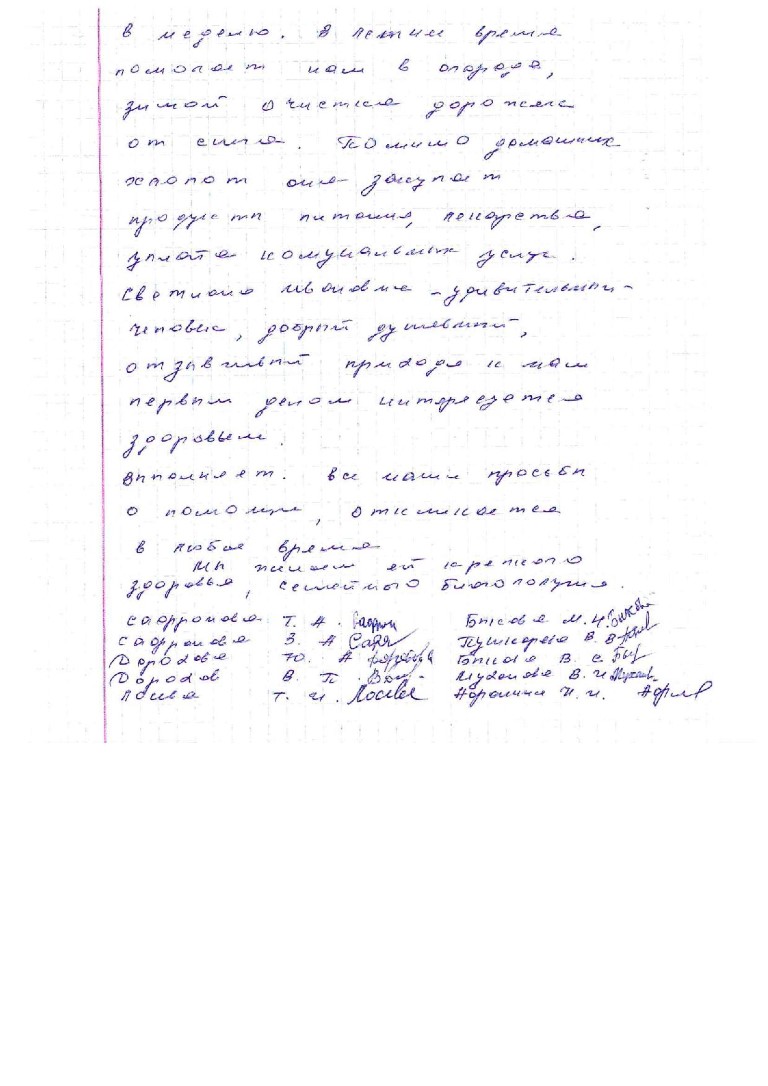 в неделю. В летнии время
помогает нам в огороде,
зимой очистке дорожек
от снега. Помимо домашних
хлопот она закупает
продукты питания, лекарства,
уплата комунальных услуг.
Светлана Ивановна - удивительный -
человек, добрый душевный,
отзывчивый приходя к нам
первым делом интересуется
здоровьем.
Выполняет. все наши просьбы
о помощи, откликается
в любое время
Мы желаем ей крепкого
здоровья, семейного благополучия.
Сафронова Т. А. Быкова М. И.
Сафронова З. А Пушкарева В. В
Дорохова Ю. А Быкова В. С
Дорохов В. П. Муханова В. И
Лосева Т. И. Лосева И. И.